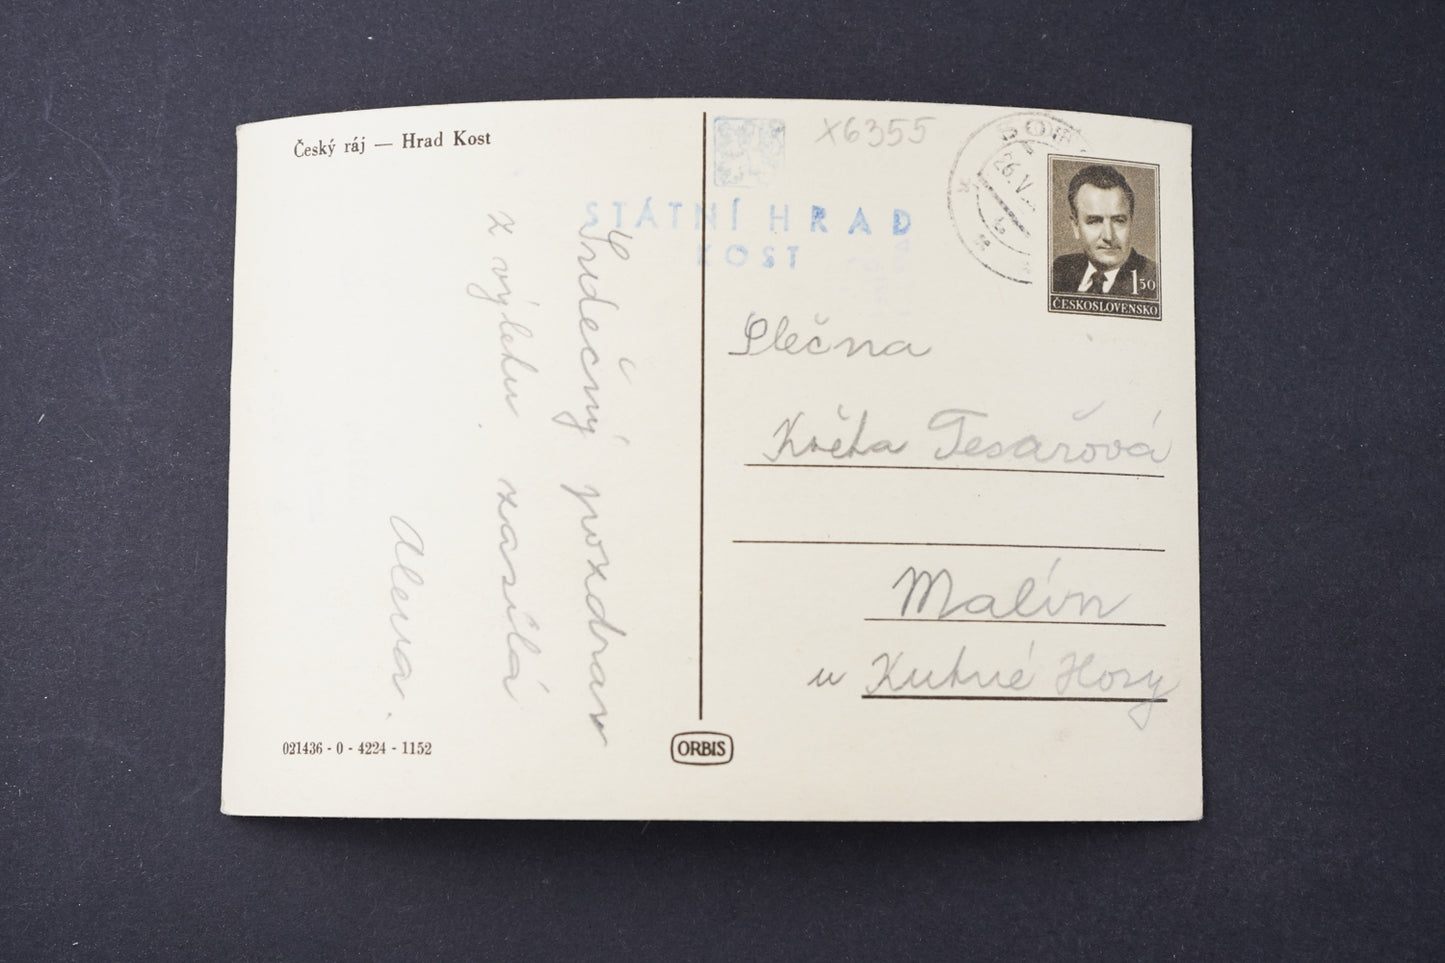 Český ráj — Hrad Kost
X6355
STÁTNÍ HRAD
KOST
26.V.
1 50
ČESKOSLOVENSKO
Srdečný pozdrav
z výletu zasílá
Alena.
Slečna
Květa Tesařová
Malín
u Kutné Hory
021436 - 0 - 4224 - 1152
ORBIS